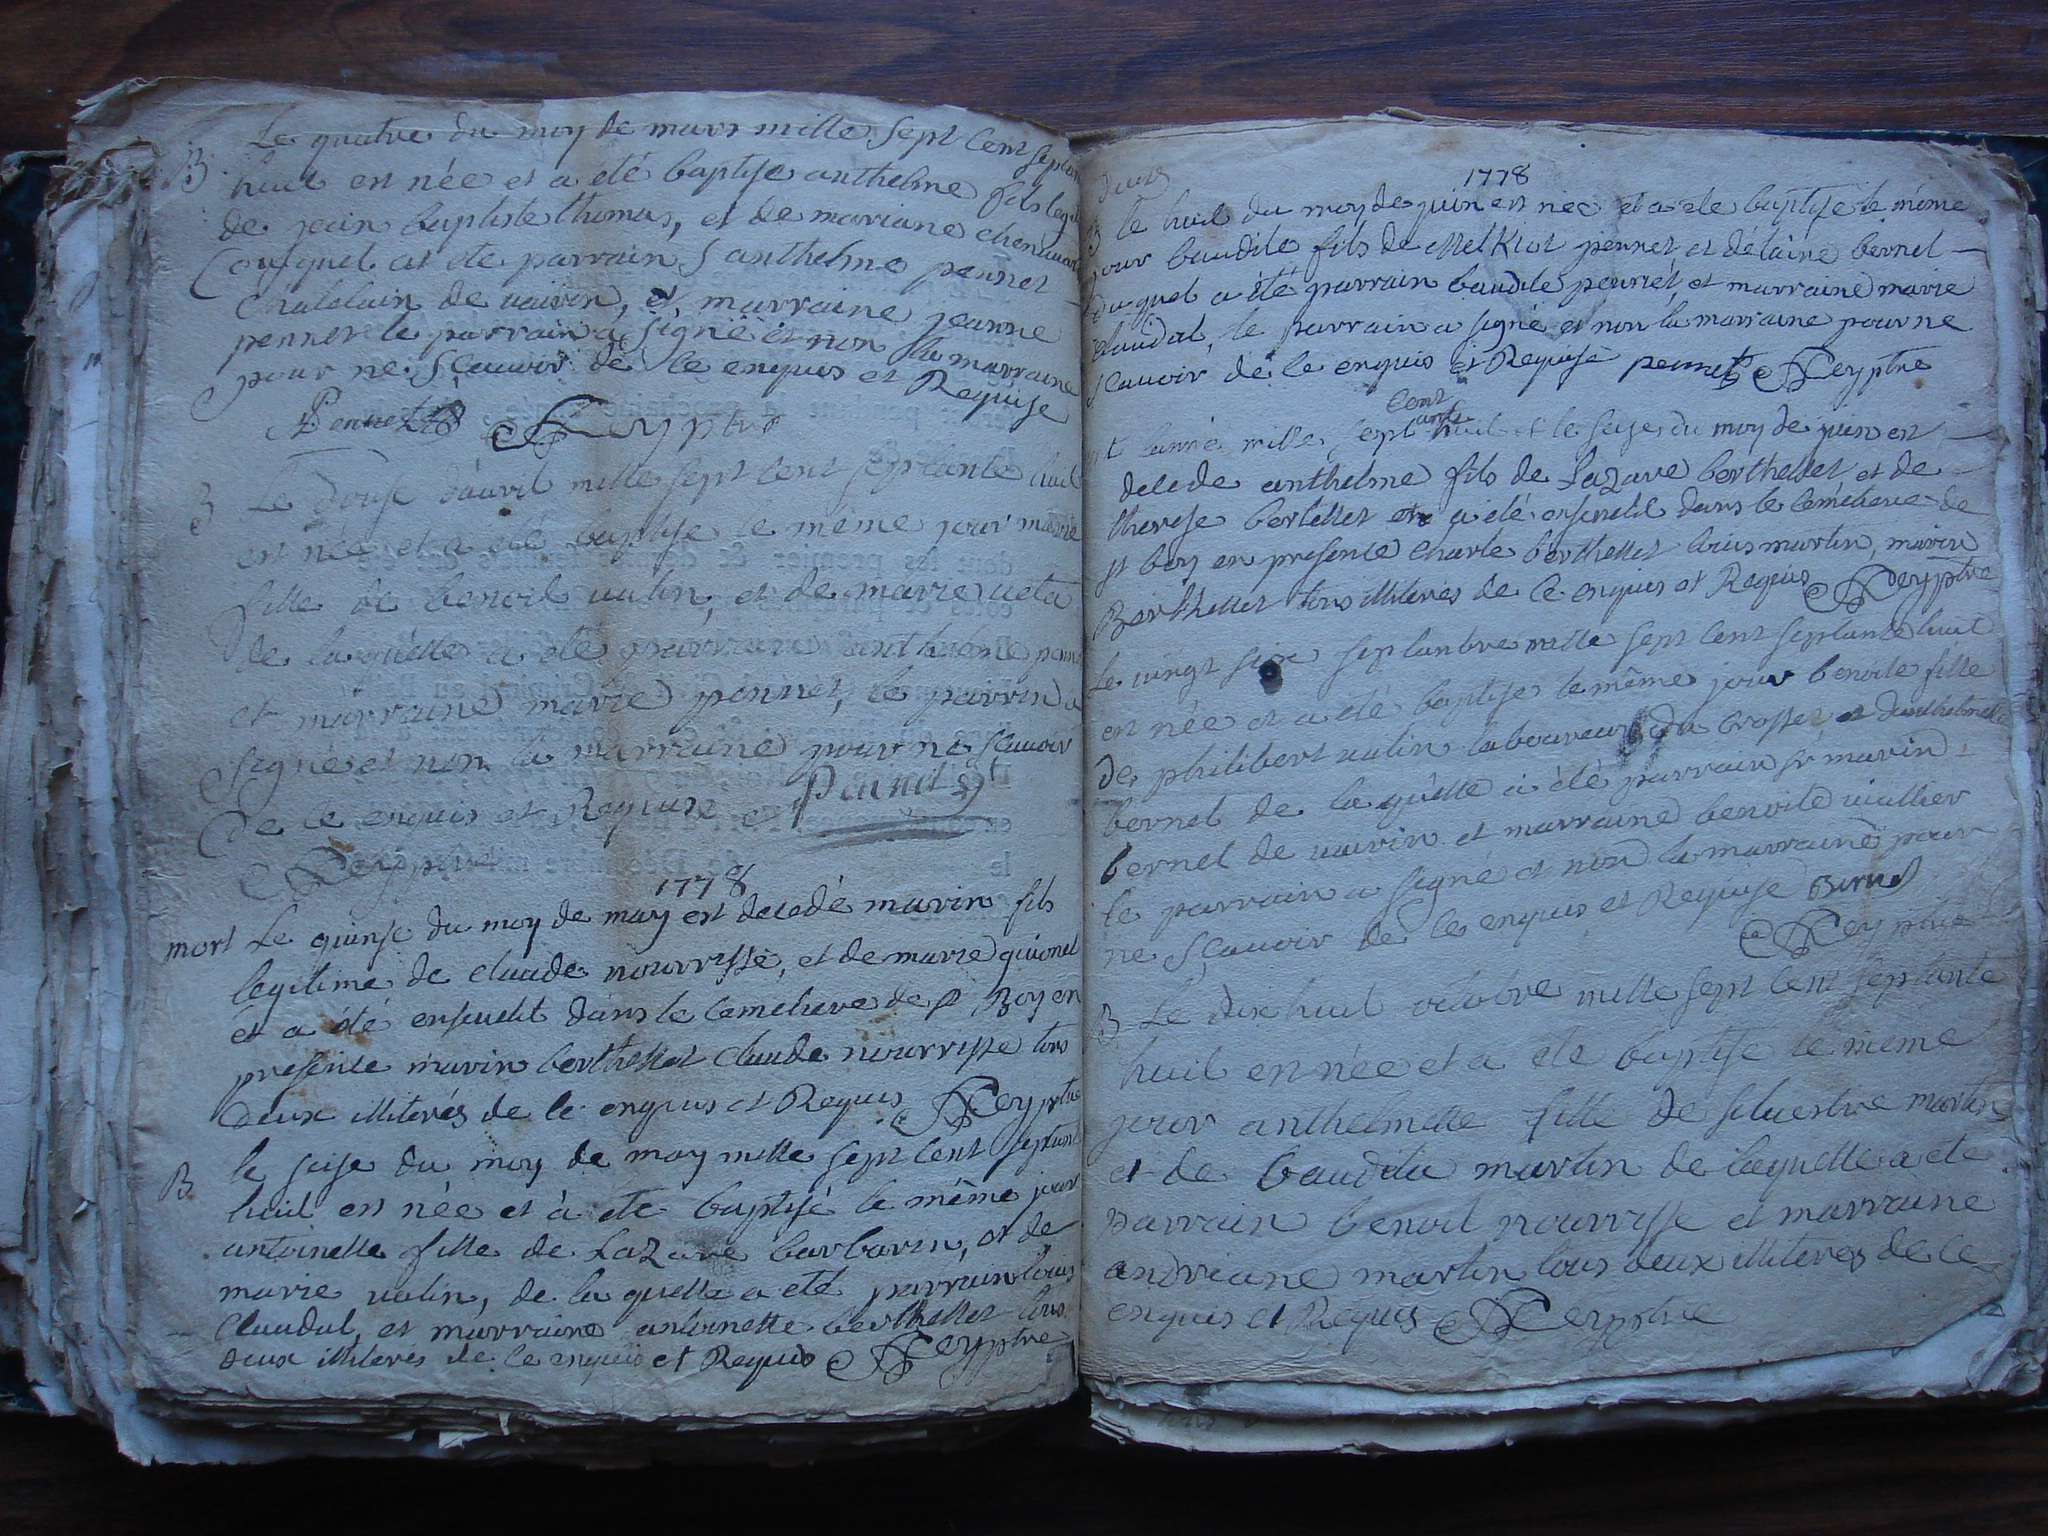 B Le quatre du moy de mars mille sept cent septan
huil est née et a été baptise anthelme fils legit
de jean baptiste thomas, et de mariane
Couquel at ete parrain S anthelme pennet
Chatelain de uaivin, et marraine jeanne
pennet le parrain a signé et non la marraine
pour ne Scauoir de ce enquis et Requise
Pennet Reyptre
B Le Douse dàuvil mille sept cent septante huil
est née et a eté baptise le même jour marie
fille de benoil uulin, et de marie ueta
de laquelle a ete parrain anthelme penn
et marraine marie pennet, le parrin a
signé et non la marraine pour ne scauoir
de ce enquis et Requise Pennet
Reyptre
1778
mort Le quinse du moy de may est decedé marin fils
legitime de claude nourrisse, et de marie guionet
et a été enseuelit dans le cemetiere de st Boy en
presence marin berthellet Claude nourrisse tous
deux illiterés de ce enquis et Requis Reyptre
B le seise du moy de may mille sept cent septant
huil est née et à ete baptisé le même jour
antoinette fille de Lazare barbarin, et de
marie uulin, de la quelle a eté parrain louis
Claudal, et marraine antoinette berthellet tous
deux illiteres de ce enquis et Requis Reyptre
1778
B le huil du moy de juin est née et a ete baptise le même
jour baudile fils de Melkiot pennet et délaine bernel
du quel a été parrain baudile pennet, et marraine marie
claudal, le parrain a signé et non la marraine pour ne
scauoir de ce enquis et Requise pennet Reyptre
cent
ante
mort lanné mille sept huil et le seise du moy de juin est
decede anthelme fils de Lazare berthellet et de
therese bertellet et a eté enseuelit dans le cemetiere de
st boy en presence Charle berthellet louis martin, marin
Berthellet tous illiteres de ce enquis et Requis Reyptre
Le uingt six septanbre mille sept cent septante huil
est née et a eté baptise le même jour benoite fille
de philibert uulin laboureur du brosset et danthelmette
bernel de la quelle à été parrain sr marin
bernel de uaivin et marraine benoite uiallier
le parrain a signé et non la marraine pour
ne Scauoir de ce enquis et Requise Bernel
Reyptre
B Le dix huil octobre mille sept cent septante
huil est née et a ete baptise le même
jour anthelmette fille de siluestre martin
et de baudila martin de laquelle a ete
parrain benoit nourrisse et marraine
andriane martin tous deux illiteres de ce
enquis et Requis Reyptre